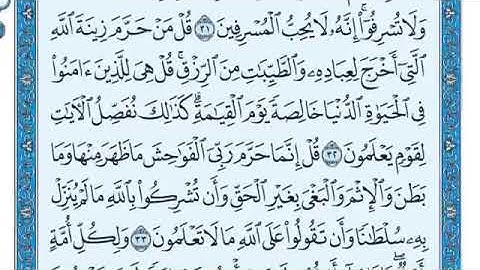 وَلَا تُسْرِفُوٓا۟ ۚ إِنَّهُۥ لَا يُحِبُّ ٱلْمُسْرِفِينَ ٣١ قُلْ مَنْ حَرَّمَ زِينَةَ ٱللَّهِ
ٱلَّتِىٓ أَخْرَجَ لِعِبَادِهِۦ وَٱلطَّيِّبَٰتِ مِنَ ٱلرِّزْقِ ۚ قُلْ هِىَ لِلَّذِينَ ءَامَنُوا۟
فِى ٱلْحَيَوٰةِ ٱلدُّنْيَا خَالِصَةً يَوْمَ ٱلْقِيَٰمَةِ ۗ كَذَٰلِكَ نُفَصِّلُ ٱلْءَايَٰتِ
لِقَوْمٍ يَعْلَمُونَ ٣٢ قُلْ إِنَّمَا حَرَّمَ رَبِّىَ ٱلْفَوَٰحِشَ مَا ظَهَرَ مِنْهَا وَمَا
بَطَنَ وَٱلْإِثْمَ وَٱلْبَغْىَ بِغَيْرِ ٱلْحَقِّ وَأَن تُشْرِكُوا۟ بِٱللَّهِ مَا لَمْ يُنَزِّلْ
بِهِۦ سُلْطَٰنًا وَأَن تَقُولُوا۟ عَلَى ٱللَّهِ مَا لَا تَعْلَمُونَ ٣٣ وَلِكُلِّ أُمَّةٍ